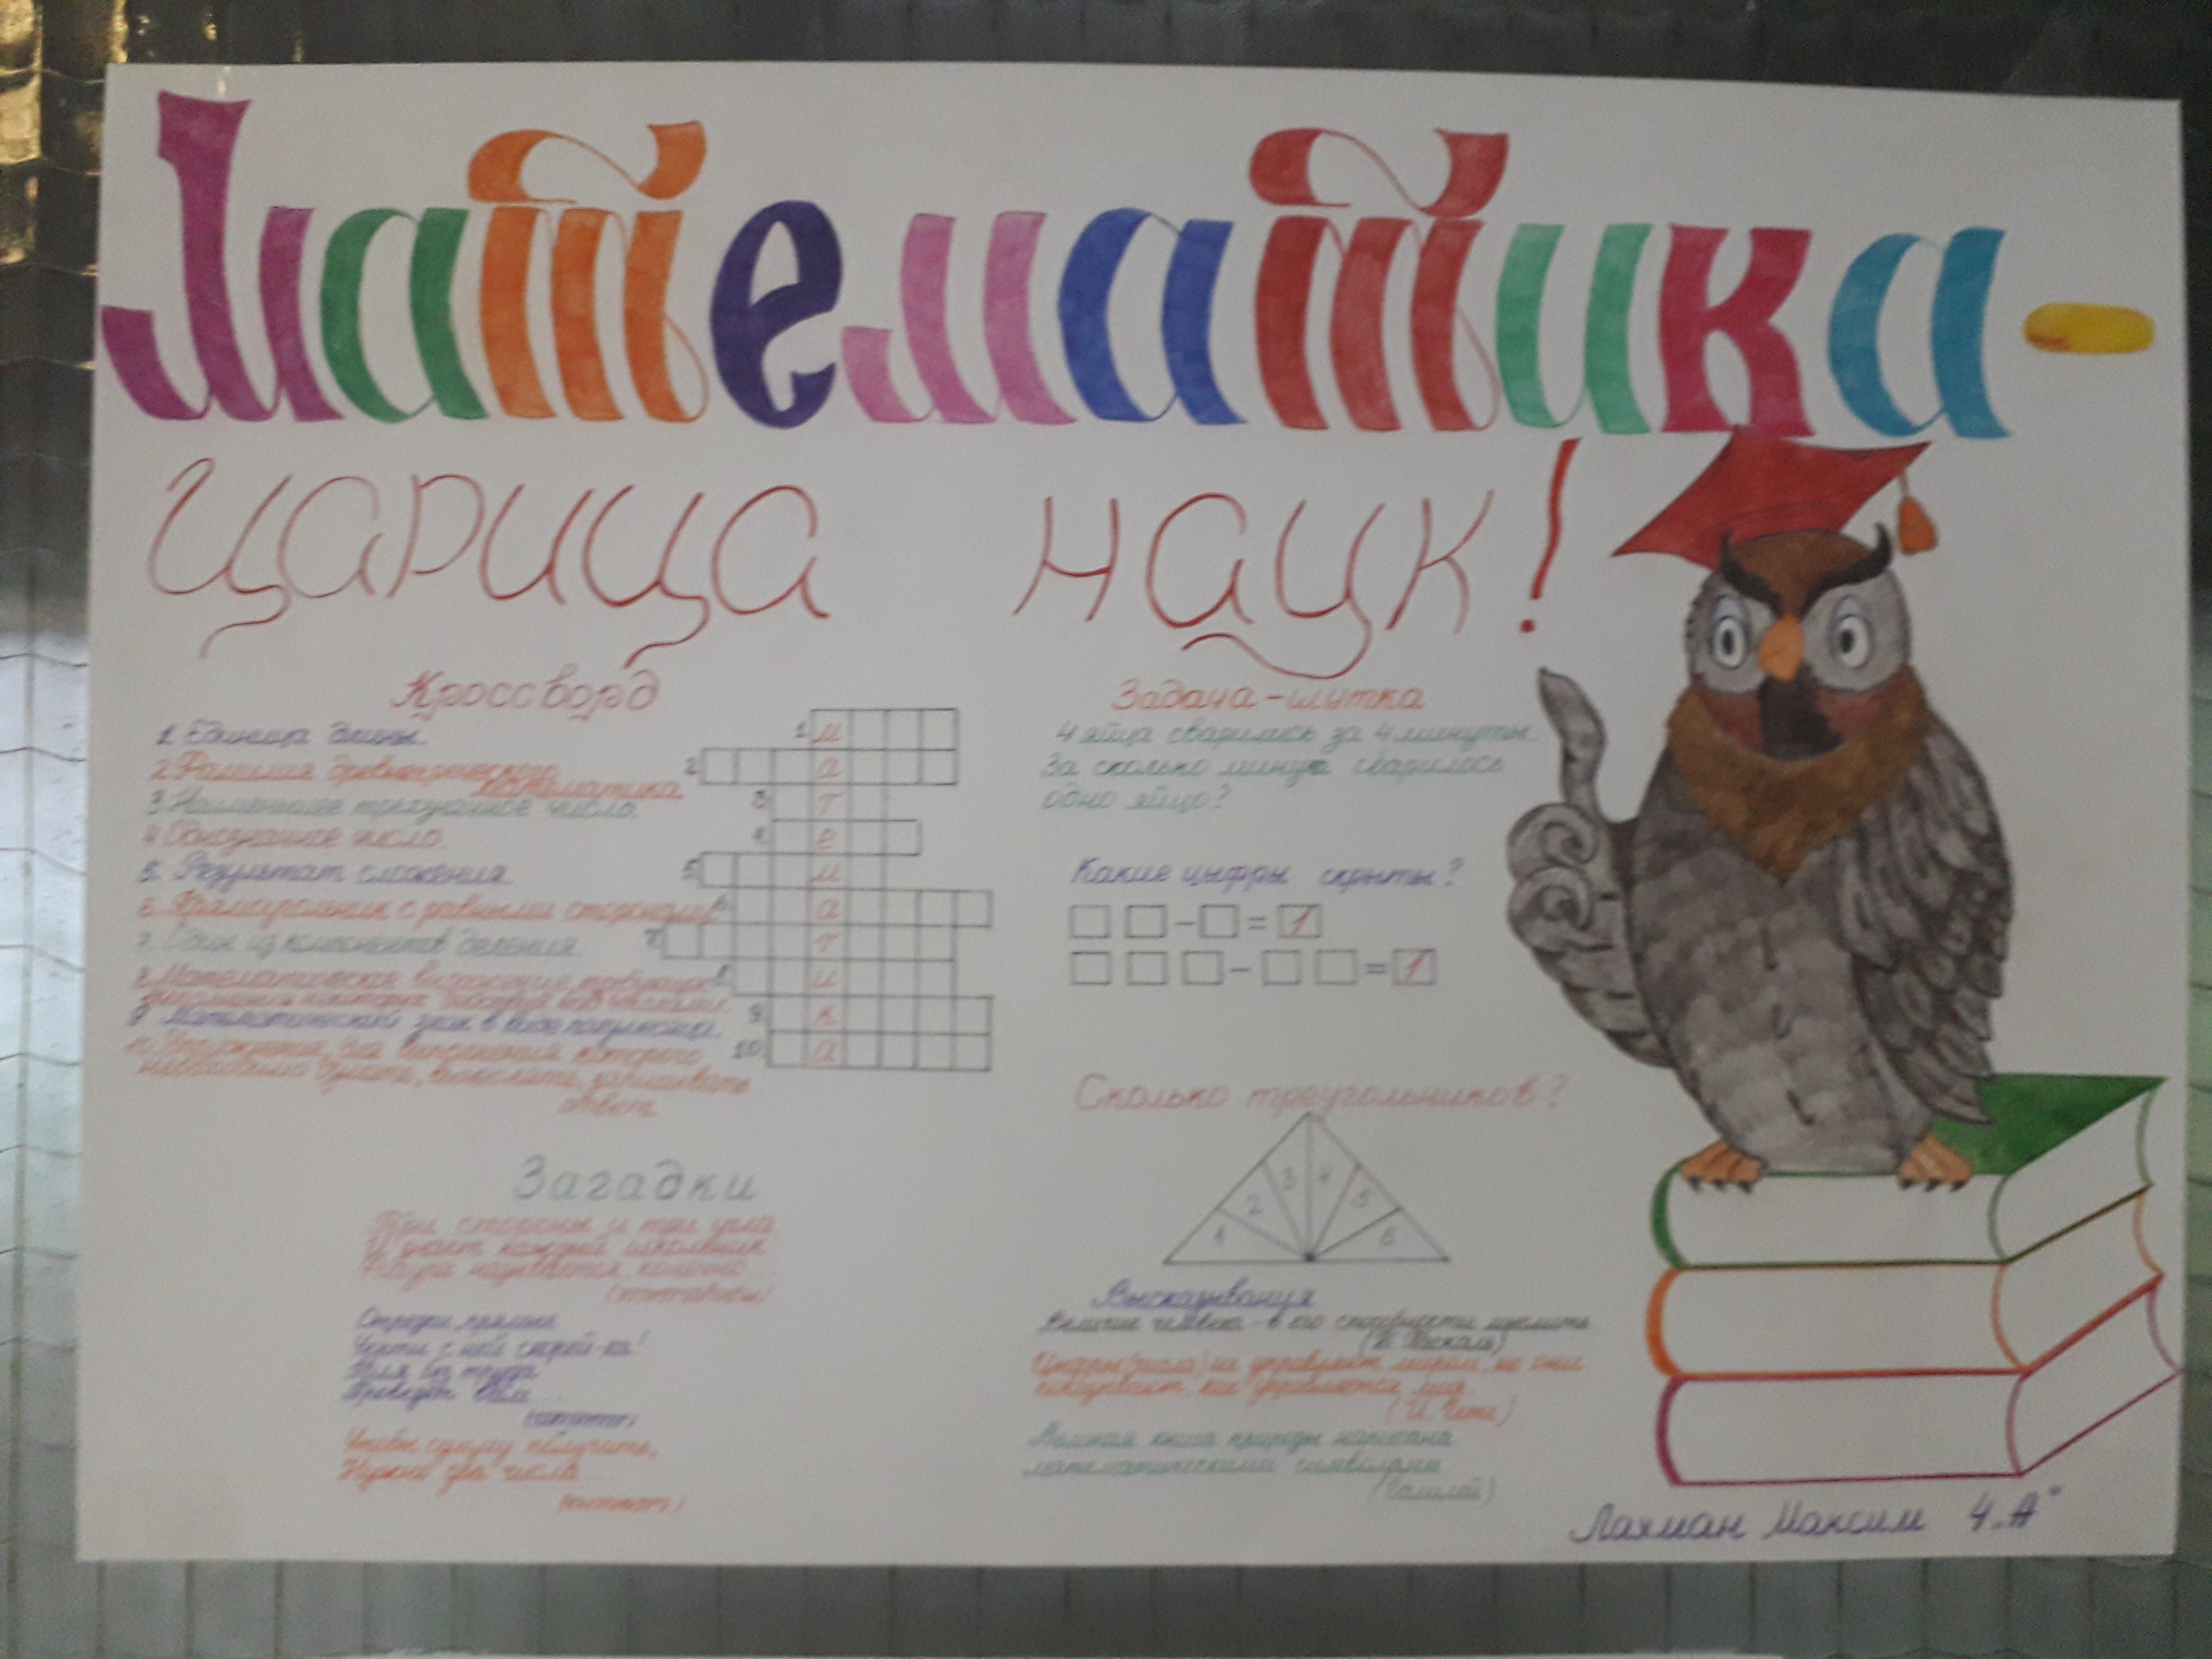 Математика-
царица наук!
Кроссворд
1. Единица длины.
2. Фамилия древнегреческого
математика
3. Наименьшее трехзначное число.
4. Однозначное число.
5. Результат сложения.
6. Прямоугольник с равными сторонами
7. Один из компонентов деления.
8. Математическое
9. Математический знак в виде полумесяца.
10. выполнения которого
необходимо думать, вычислять, записывать
ответ.
1 м
2 а
3 т
4 е
5 м
6 а
7 т
8 и
9 к
10 а
Загадки
Три стороны и три угла
И знает каждый школьник
Фигура называется, конечно...
Отрезки, прямые
Черти с ней скорей-ка!
Чтобы сумму получить,
Нужно два числа
Задача-шутка
4 яйца сварились за 4 минуты.
За сколько минут сварилось
одно яйцо?
Какие цифры скрыты?
- = 1
- = 1
Сколько треугольников?
1 2 3 4 5 6
Высказывания
Величие человека - в его способности мыслить
(Б. Паскаль)
Цифры (числа) не управляют миром, но они
показывают, как управляется мир.
(И. Гете)
Великая книга природы написана
математическими символами
(Галилей)
Лахман Максим 4„А"